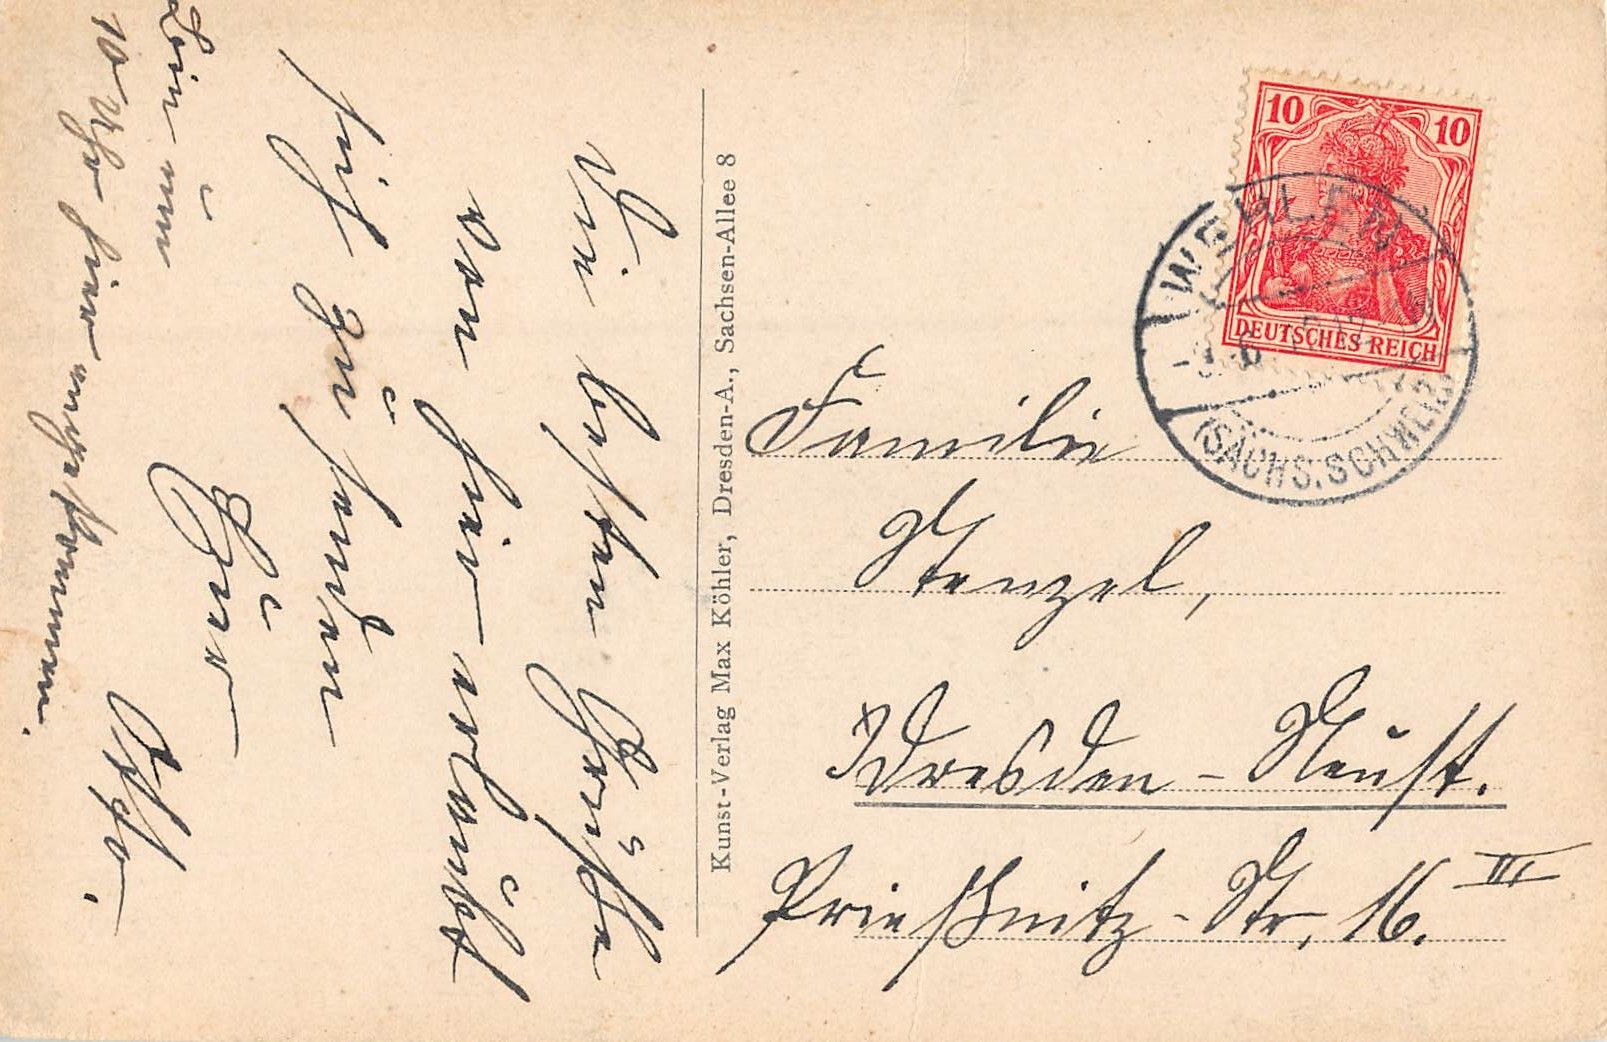 Die besten Grüße
von hier erlaubt
sich zu senden
Euer
Otto.
Bin nun
10 Uhr hier angekommen.
Kunst-Verlag Max Köhler, Dresden-A., Sachsen-Allee 8
10 10
DEUTSCHES REICH
WEHLEN
(SÄCHS. SCHWEIZ)
Familie
Stenzel,
Dresden-Neust.
Prießnitz-Str. 16. III